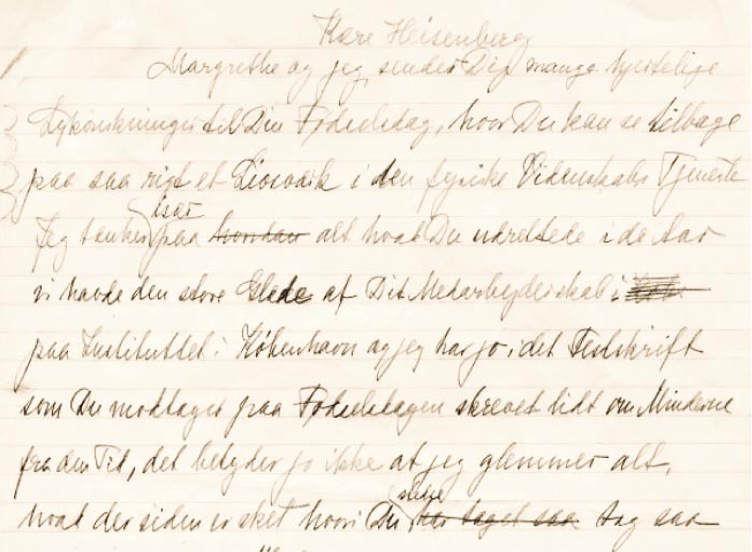 Kære Heisenberg
Margrethe og jeg sender Dig mange hjertelige
Lykønskninger til Din Fødselsdag, hvor Du kan se tilbage
paa saa rigt et Livsværk i den fysiske Videnskabs Tjeneste
især
Jeg tænker paa hvordan alt hvad Du udrettede i de Aar
vi havde den store Glæde af Dit Medarbejderskab i
paa Instituttet i København og jeg har jo i det Festskrift
som Du modtager paa Fødselsdagen skrevet lidt om Minderne
fra den Tid, det betyder jo ikke at jeg glemmer alt,
hvad der siden er sket hvori Du har taget saa tog saa